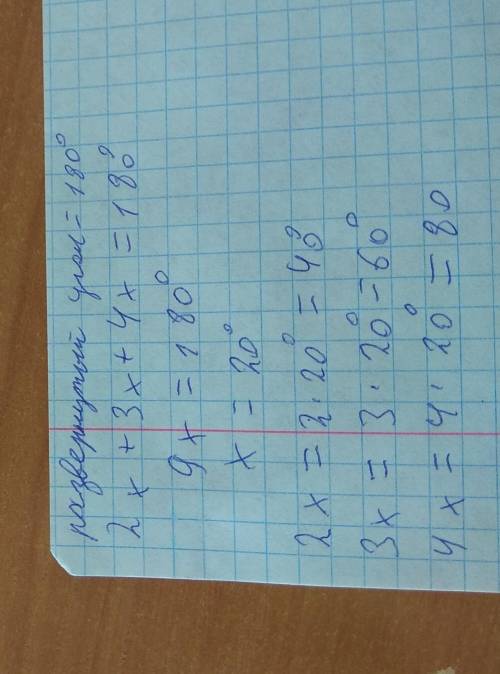 развернутый угол = 180°
2x + 3x + 4x = 180°
9x = 180°
x = 20°
2x = 2·20° = 40°
3x = 3·20° = 60°
4x = 4·20° = 80